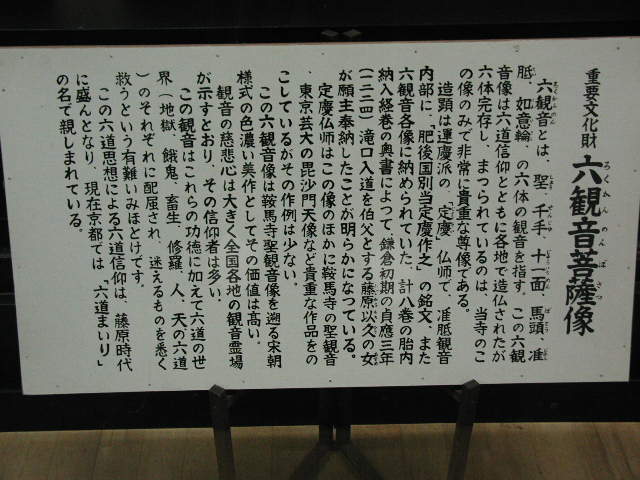 重要文化財 六観音菩薩像
ろくかんのんぼさつ
六観音とは、聖、千手、十一面、馬頭、准
胝、如意輪、の六体の観音を指す。この六観
音像は六道信仰とともに各地で造仏されたが
六体完存し、まつられているのは、当寺のこ
の像のみで非常に貴重な尊像である。
造顕は運慶派の、「定慶」仏師で、准胝観音
内部に、「肥後国別当定慶作之」の銘文、また
六観音各像に納められていた、計八巻の胎内
納入経巻の奥書によつて、鎌倉初期の貞應三年
(一二二四)滝口入道を伯父とする藤原以久の女
が願主奉納したことが明らかになつている。
定慶仏師はこの像のほかに鞍馬寺の聖観音
、東京芸大の毘沙門天像など貴重な作品をの
こしているがその作例は少ない。
この六観音像は鞍馬寺聖観音像を遡る宋朝
様式の色濃い美作としてその価値は高い。
観音の慈悲心は大きく全国各地の観音霊場
が示すとおり、その信仰者は多い。
この観音はこれらの功徳に加えて六道の世
界(地獄、餓鬼、畜生、修羅、人、天の六道
)のそれぞれに配属され、迷えるものを悉く
救うという有難いみほとけです。
この六道思想による六道信仰は、藤原時代
に盛んとなり、現在京都では、「六道まいり」
の名で親しまれている。